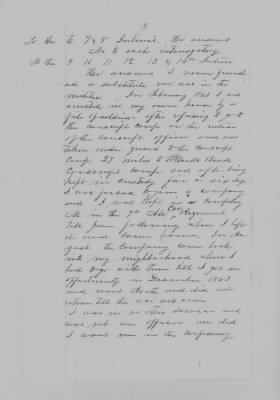 3
To the 6 7 & 8 Interrog. He answers
No to each interrogatory
To the 9 10 11 12 13 & 14th Interro
He answers I never furnish
ed a substitute nor was in the
In February 1863 I was
arrested in my own house by a
after refusing to go to
the conscript camp on the notice
of the conscript officer and was
taken under guard to the Conscript
Camp 27 miles to Pollards Bend
Conscript camp and after being
kept in custody for days
I was forced to join a company
and I was kept in a Company
M in the 7th Ala Cav Regiment
till June following when I left
it and came home, In Au
gust the Company came back
into my neighborhood when I
had to go with them till I got an
opportunity in December 1863
and went North and did not
return till the war was over
I was in no other service and
was not an officer nor did
I want one in the Confederacy